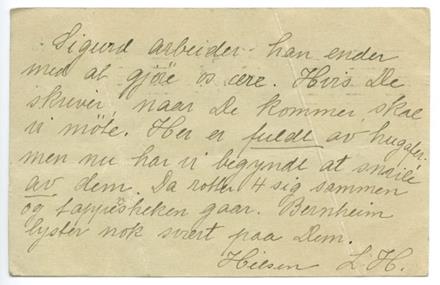 Sigurd arbeider – han ender
med at gjøre os ære. Hvis De
skriver, naar De kommer, skal
vi möte. Her er fuldt av
men nu har vi begyndt at smile
av dem. Da 4 sig sammen
og gaar. Bernheim
lyster nok svært paa Dem.
Hilsen L. H.